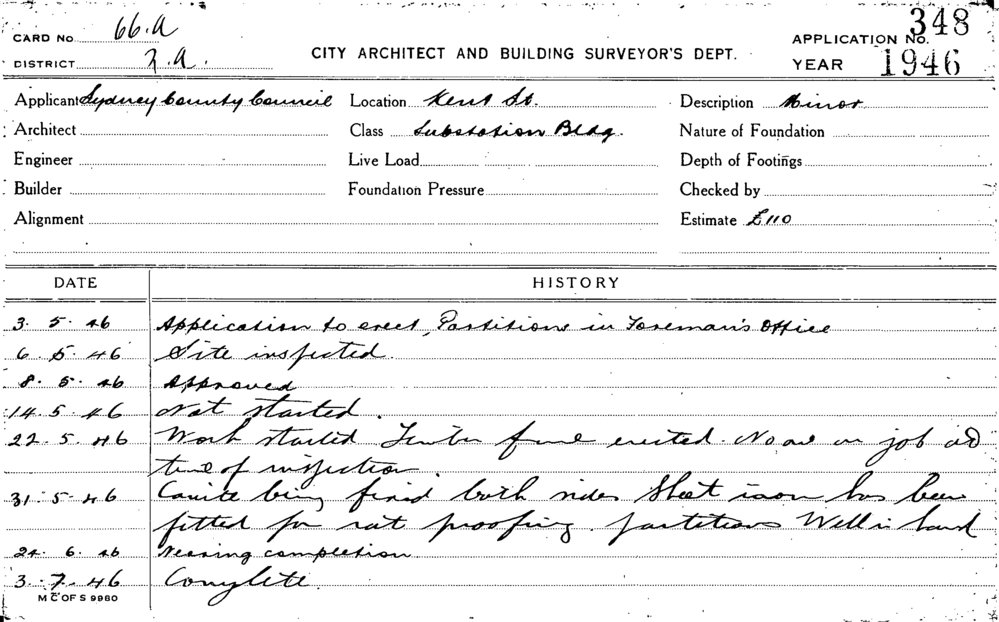 CARD No 66.A
DISTRICT 2.A.
CITY ARCHITECT AND BUILDING SURVEYOR'S DEPT.
APPLICATION No. 348
YEAR 1946
Applicant Sydney County Council Location Kent St. Description Minor
Architect Class Substation Bldg. Nature of Foundation
Engineer Live Load Depth of Footings
Builder Foundation Pressure Checked by
Alignment Estimate £110
DATE HISTORY
3. 5. 46 Application to erect Partitions in Foreman's Office
6. 5. 46 Site inspected.
8. 5. 46 Approved
14. 5. 46 Not started.
22. 5. 46 Work started Timber frame erected. No one on job at
time of inspection.
31. 5. 46 Canite being fixed both sides Sheet iron has been
fitted for rat proofing. partitions Well in hand
24. 6. 46 Nearing completion
3. 7. 46 Complete.
M C OF S 9980